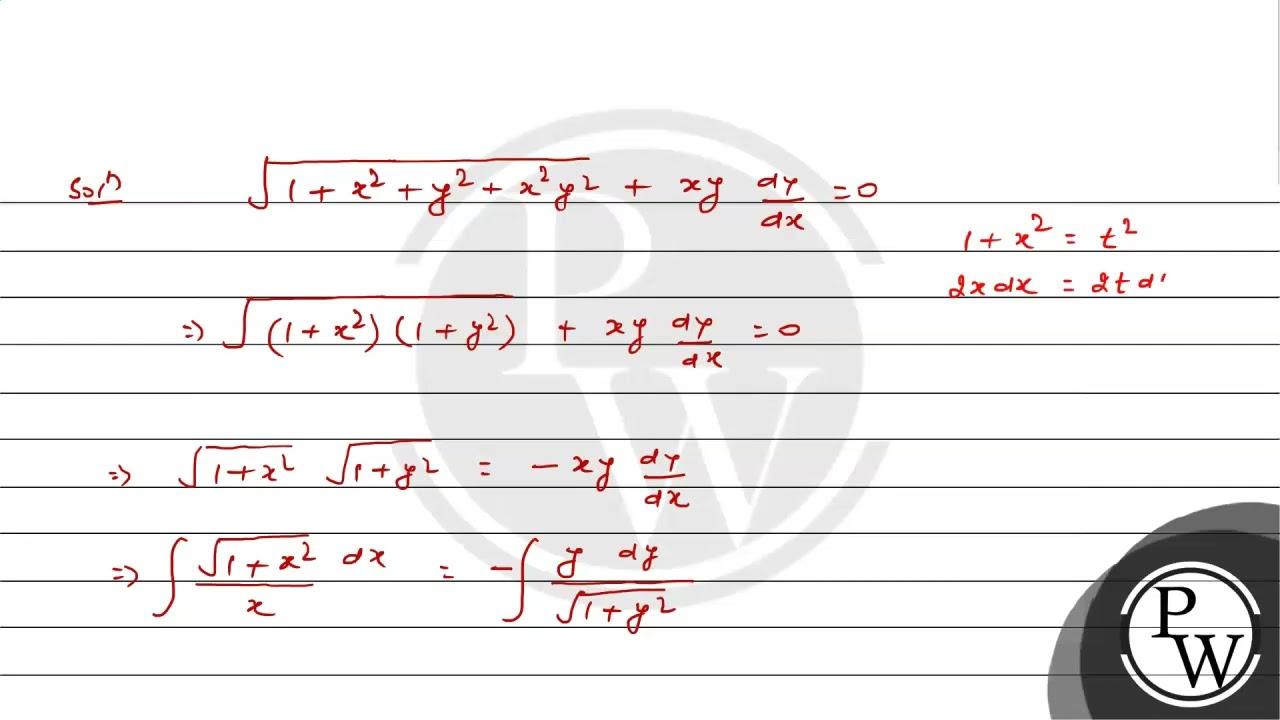 Solⁿ √(1 + x² + y² + x²y²) + xy dy/dx = 0
1 + x² = t²
2x dx = 2t d
⇒ √((1 + x²) (1 + y²)) + xy dy/dx = 0
⇒ √(1 + x²) √(1 + y²) = − xy dy/dx
⇒ ∫ √(1 + x²)/x dx = −∫ y dy/√(1 + y²)
P
W
P
W